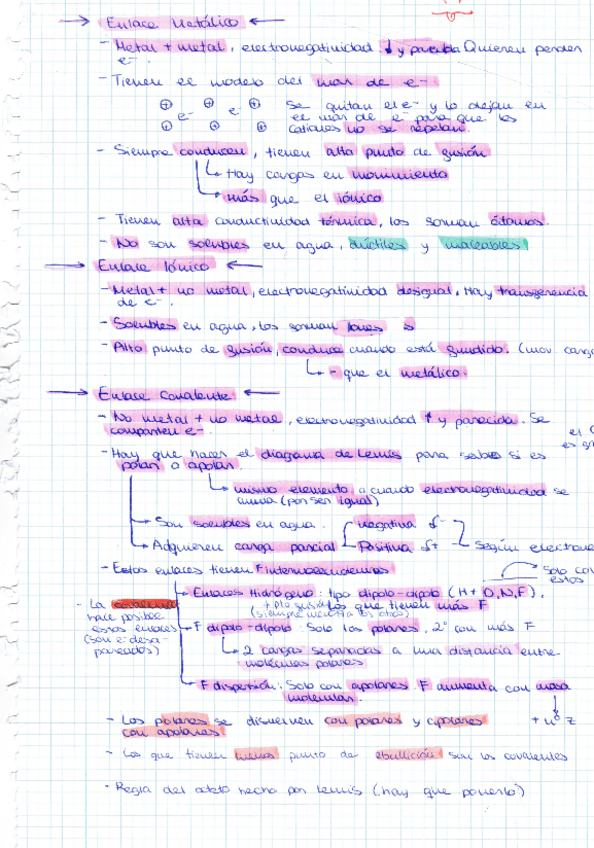 → Enlace Metálico ←
- Metal + metal, electronegatividad ↓ y parecida. Quieren perder
e⁻.
- Tienen el modelo del mar de e⁻
Se quitan el e⁻ y lo dejan en
⊕ ⊕ e⁻ ⊕
e⁻
el mar de e⁻ para que los
⊕ ⊕ ⊕
cationes no se repelan.
- Siempre conducen, tienen alto punto de fusión
↳ Hay cargas en movimiento
↳ más que el iónico
- Tienen alta conductividad térmica, los forman átomos.
- No son solubles en agua, dúctiles y maleables
→ Enlace Iónico ←
- Metal + no metal, electronegatividad desigual, Hay transferencia
de e⁻.
- Solubles en agua, los forman iones
- Alto punto de fusión, conduce cuando está fundido. (mov carga
↳ - que el metálico.
→ Enlace Covalente ←
- No metal + no metal, electronegatividad ↑ y parecida. Se
comparten e⁻.
el
es
- Hay que hacer el diagrama de Lewis para saber si es
polar o apolar.
↳ mismo elemento o cuando electronegatividad se
anula (por ser igual)
→ Son solubles en agua.
negativa δ⁻
→ Adquieren carga parcial
Positiva δ+
Según electrone
- Estos enlaces tienen F intermoleculares
Solo con
estos
→ Enlaces Hidrógeno: tipo dipolo-dipolo (H + O, N, F).
+ pto fusión Los que tienen más F
(siempre
- La covalencia
hace posible
estos enlaces
(son e⁻ desa-
pareados)
→ F dipolo-dipolo: Solo los polares, 2º con más F
↳ 2 cargas separadas a una distancia entre
moléculas polares
→ F dispersión: Solo con apolares. F aumenta con masa
molecular.
+ nº z
- Los polares se disuelven con polares y apolares
con apolares
- Los que tienen menos punto de ebullición son los covalentes
- Regla del octeto hecho por Lewis (hay que ponerlo)